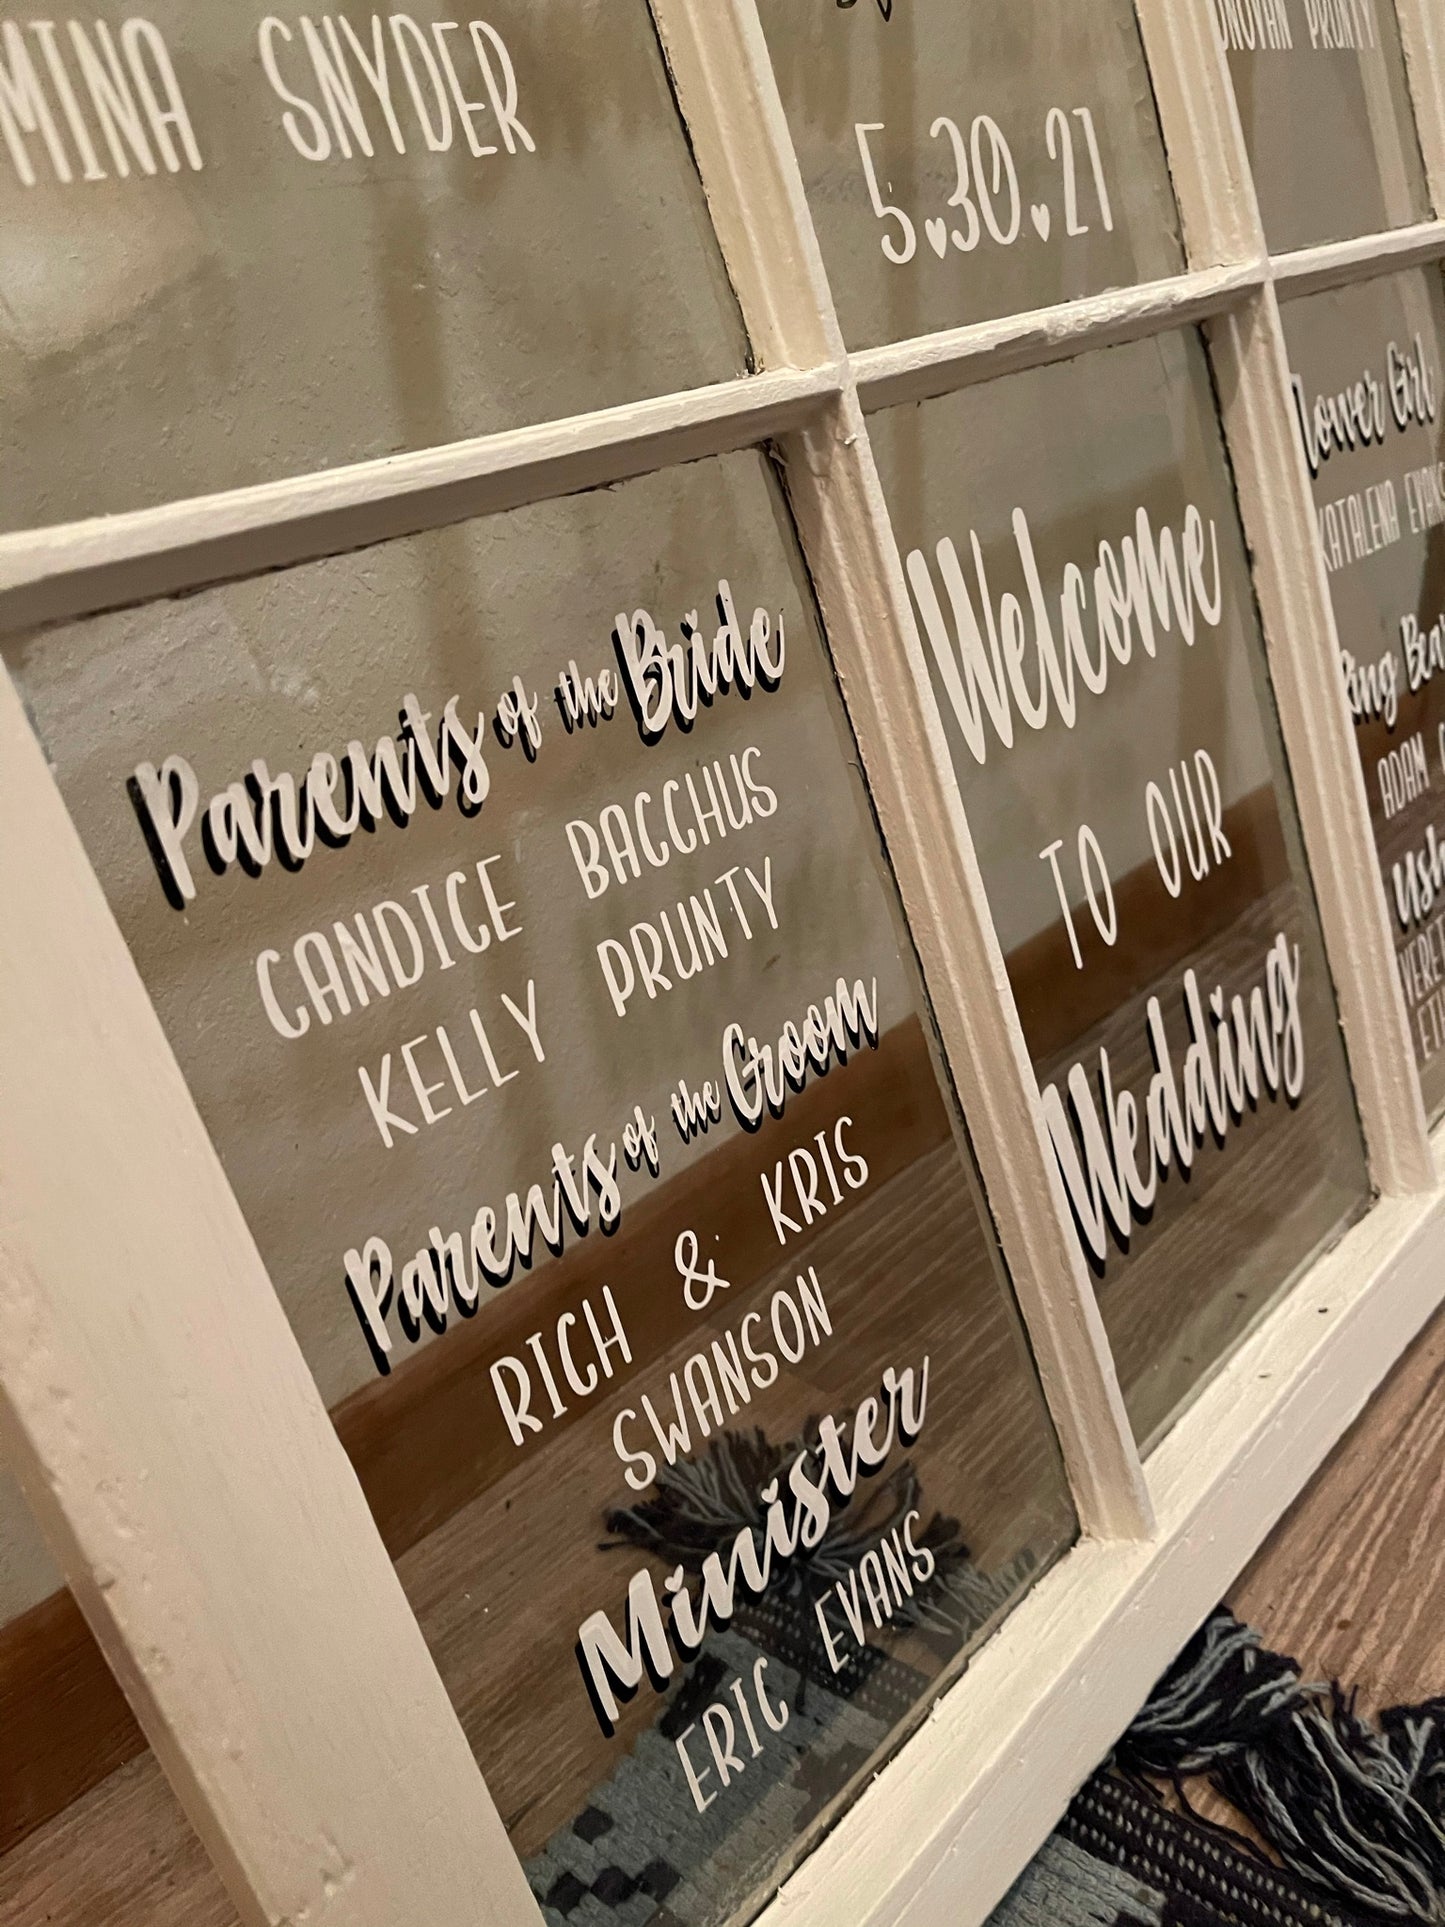 SNYDER
5.30.21
PRUNTY
Parents of the Bride
CANDICE BACCHUS
KELLY PRUNTY
Parents of the Groom
RICH & KRIS
SWANSON
Minister
ERIC EVANS
Welcome
TO OUR
Wedding
Girl
KATALENA
ADAM